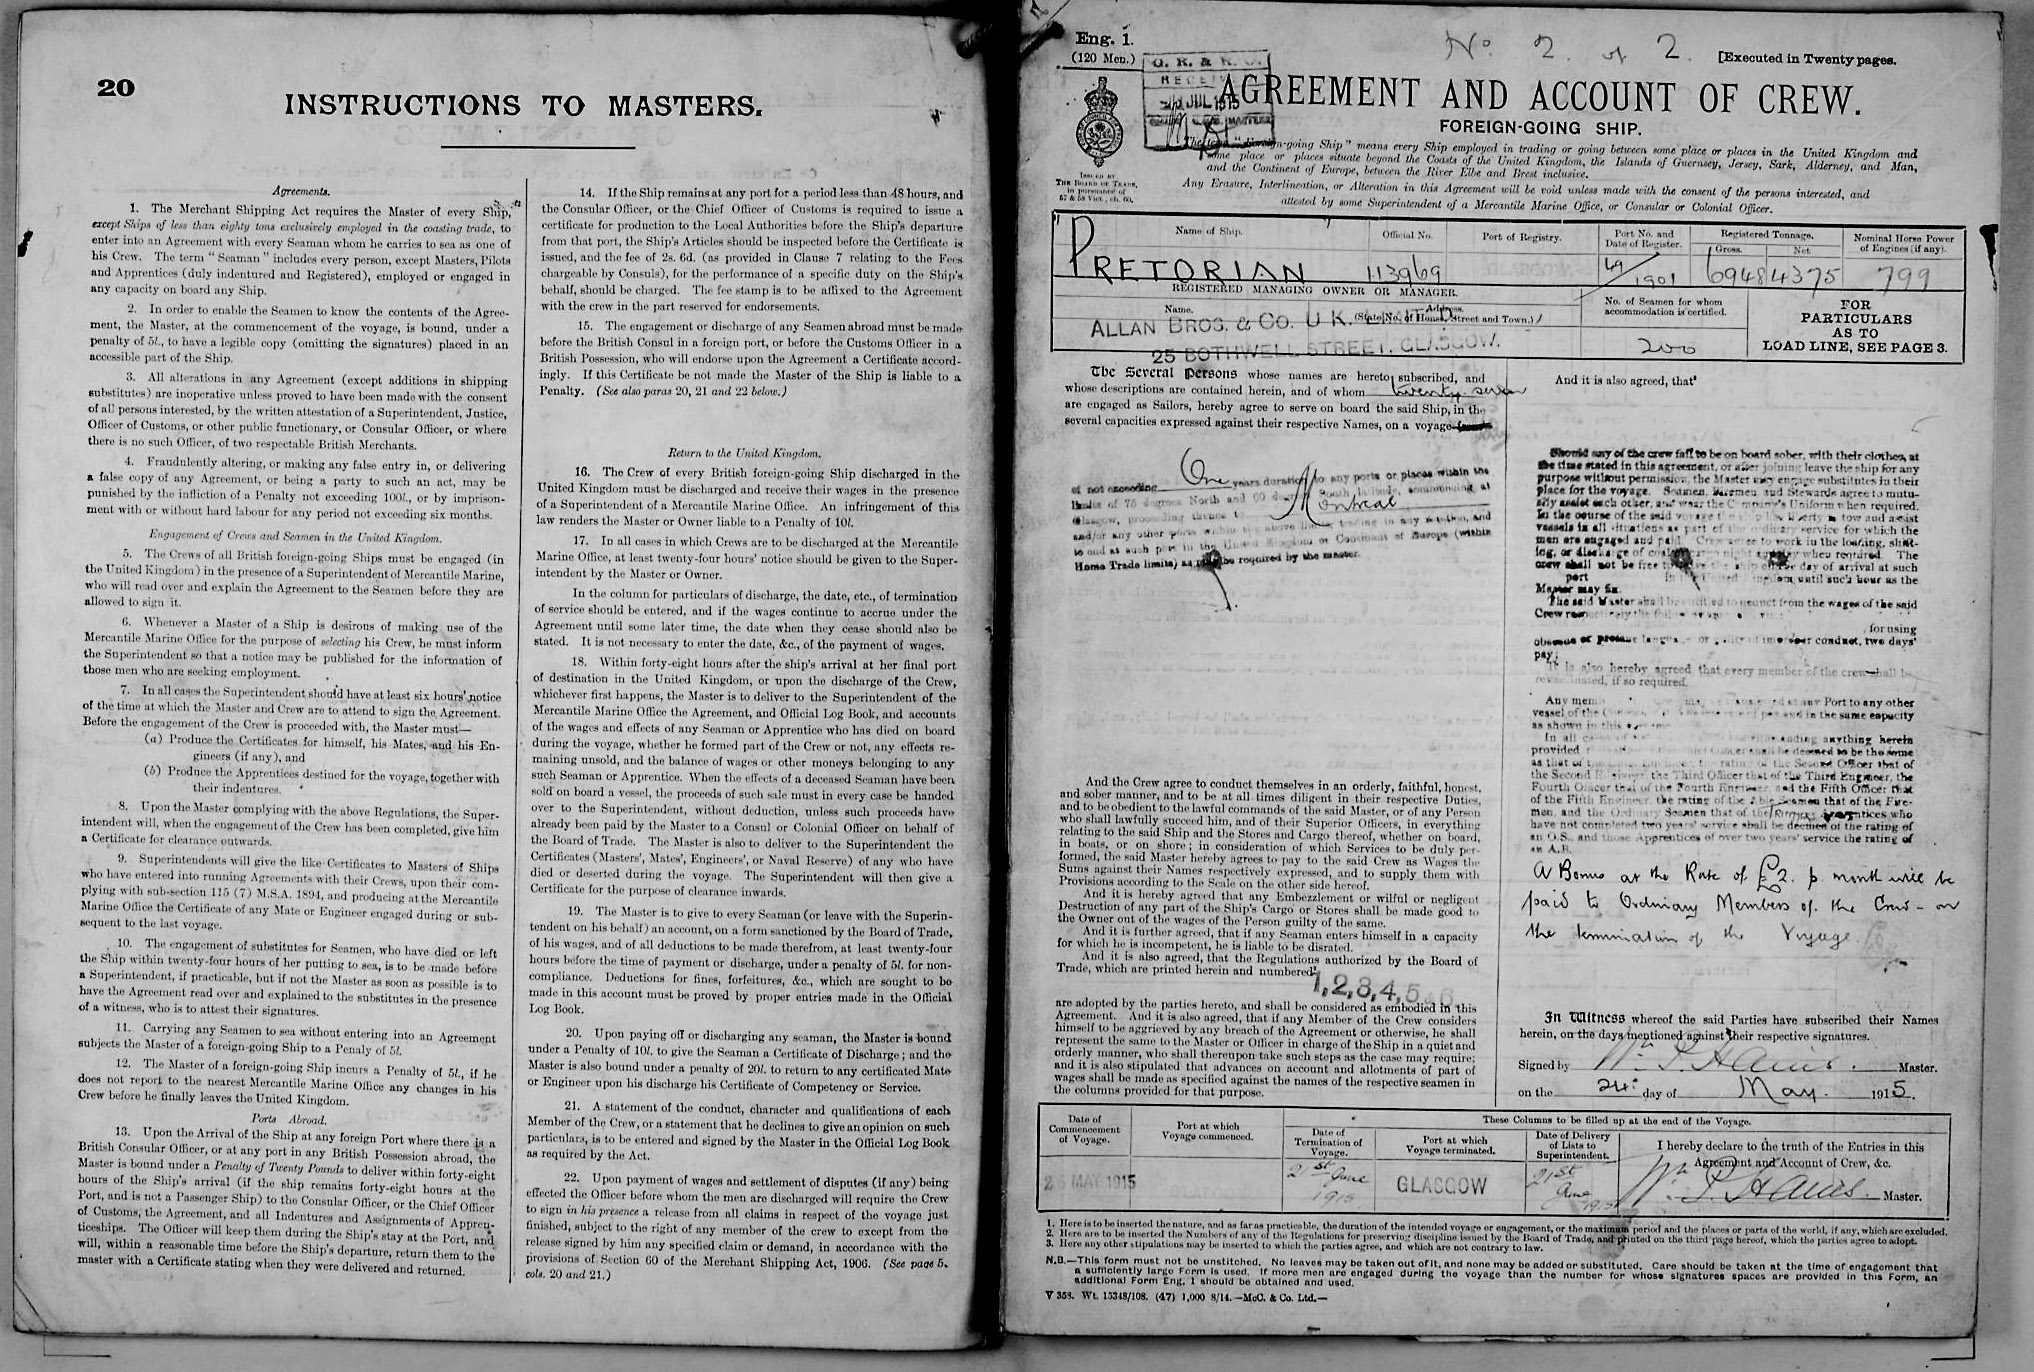 20
INSTRUCTIONS TO MASTERS.
Agreements.
1. The Merchant Shipping Act requires the Master of every Ship,
except Ships of less than eighty tons exclusively employed in the coasting trade, to
enter into an Agreement with every Seaman whom he carries to sea as one of
his Crew. The term "Seaman" includes every person, except Masters, Pilots
and Apprentices (duly indentured and Registered), employed or engaged in
any capacity on board any Ship.
2. In order to enable the Seamen to know the contents of the Agree-
ment, the Master, at the commencement of the voyage, is bound, under a
penalty of 5l., to have a legible copy (omitting the signatures) placed in an
accessible part of the Ship.
3. All alterations in any Agreement (except additions in shipping
substitutes) are inoperative unless proved to have been made with the consent
of all persons interested, by the written attestation of a Superintendent, Justice,
Officer of Customs, or other public functionary, or Consular Officer, or where
there is no such Officer, of two respectable British Merchants.
4. Fraudulently altering, or making any false entry in, or delivering
a false copy of any Agreement, or being a party to such an act, may be
punished by the infliction of a Penalty not exceeding 100l., or by imprison-
ment with or without hard labour for any period not exceeding six months.
Engagement of Crews and Seamen in the United Kingdom.
5. The Crews of all British foreign-going Ships must be engaged (in
the United Kingdom) in the presence of a Superintendent of Mercantile Marine,
who will read over and explain the Agreement to the Seamen before they are
allowed to sign it.
6. Whenever a Master of a Ship is desirous of making use of the
Mercantile Marine Office for the purpose of selecting his Crew, he must inform
the Superintendent so that a notice may be published for the information of
those men who are seeking employment.
7. In all cases the Superintendent should have at least six hours' notice
of the time at which the Master and Crew are to attend to sign the Agreement.
Before the engagement of the Crew is proceeded with, the Master must—
(a) Produce the Certificates for himself, his Mates, and his En-
gineers (if any), and
(b) Produce the Apprentices destined for the voyage, together with
their indentures.
8. Upon the Master complying with the above Regulations, the Super-
intendent will, when the engagement of the Crew has been completed, give him
a Certificate for clearance outwards.
9. Superintendents will give the like Certificates to Masters of Ships
who have entered into running Agreements with their Crews, upon their com-
plying with sub-section 115 (7) M.S.A. 1894, and producing at the Mercantile
Marine Office the Certificate of any Mate or Engineer engaged during or sub-
sequent to the last voyage.
10. The engagement of substitutes for Seamen, who have died or left
the Ship within twenty-four hours of her putting to sea, is to be made before
a Superintendent, if practicable, but if not the Master as soon as possible is to
have the Agreement read over and explained to the substitutes in the presence
of a witness, who is to attest their signatures.
11. Carrying any Seamen to sea without entering into an Agreement
subjects the Master of a foreign-going Ship to a Penaly of 5l.
12. The Master of a foreign-going Ship incurs a Penalty of 5l., if he
does not report to the nearest Mercantile Marine Office any changes in his
Crew before he finally leaves the United Kingdom.
Ports Abroad.
13. Upon the Arrival of the Ship at any foreign Port where there is a
British Consular Officer, or at any port in any British Possession abroad, the
Master is bound under a Penalty of Twenty Pounds to deliver within forty-eight
hours of the Ship's arrival (if the ship remains forty-eight hours at the
Port, and is not a Passenger Ship) to the Consular Officer, or the Chief Officer
of Customs, the Agreement, and all Indentures and Assignments of Appren-
ticeships. The Officer will keep them during the Ship's stay at the Port, and
will, within a reasonable time before the Ship's departure, return them to the
master with a Certificate stating when they were delivered and returned.
14. If the Ship remains at any port for a period less than 48 hours, and
the Consular Officer, or the Chief Officer of Customs is required to issue a
certificate for production to the Local Authorities before the Ship's departure
from that port, the Ship's Articles should be inspected before the Certificate is
issued, and the fee of 2s. 6d. (as provided in Clause 7 relating to the Fees
chargeable by Consuls), for the performance of a specific duty on the Ship's
behalf, should be charged. The fee stamp is to be affixed to the Agreement
with the crew in the part reserved for endorsements.
15. The engagement or discharge of any Seamen abroad must be made
before the British Consul in a foreign port, or before the Customs Officer in a
British Possession, who will endorse upon the Agreement a Certificate accord-
ingly. If this Certificate be not made the Master of the Ship is liable to a
Penalty. (See also paras 20, 21 and 22 below.)
Return to the United Kingdom.
16. The Crew of every British foreign-going Ship discharged in the
United Kingdom must be discharged and receive their wages in the presence
of a Superintendent of a Mercantile Marine Office. An infringement of this
law renders the Master or Owner liable to a Penalty of 10l.
17. In all cases in which Crews are to be discharged at the Mercantile
Marine Office, at least twenty-four hours' notice should be given to the Super-
intendent by the Master or Owner.
In the column for particulars of discharge, the date, etc., of termination
of service should be entered, and if the wages continue to accrue under the
Agreement until some later time, the date when they cease should also be
stated. It is not necessary to enter the date, &c., of the payment of wages.
18. Within forty-eight hours after the ship's arrival at her final port
of destination in the United Kingdom, or upon the discharge of the Crew,
whichever first happens, the Master is to deliver to the Superintendent of the
Mercantile Marine Office the Agreement, and Official Log Book, and accounts
of the wages and effects of any Seaman or Apprentice who has died on board
during the voyage, whether he formed part of the Crew or not, any effects re-
maining unsold, and the balance of wages or other moneys belonging to any
such Seaman or Apprentice. When the effects of a deceased Seaman have been
sold on board a vessel, the proceeds of such sale must in every case be handed
over to the Superintendent, without deduction, unless such proceeds have
already been paid by the Master to a Consul or Colonial Officer on behalf of
the Board of Trade. The Master is also to deliver to the Superintendent the
Certificates (Masters', Mates', Engineers', or Naval Reserve) of any who have
died or deserted during the voyage. The Superintendent will then give a
Certificate for the purpose of clearance inwards.
19. The Master is to give to every Seaman (or leave with the Superin-
tendent on his behalf) an account, on a form sanctioned by the Board of Trade,
of his wages, and of all deductions to be made therefrom, at least twenty-four
hours before the time of payment or discharge, under a penalty of 5l. for non-
compliance. Deductions for fines, forfeitures, &c., which are sought to be
made in this account must be proved by proper entries made in the Official
Log Book.
20. Upon paying off or discharging any seaman, the Master is bound
under a Penalty of 10l. to give the Seaman a Certificate of Discharge; and the
Master is also bound under a penalty of 20l. to return to any certificated Mate
or Engineer upon his discharge his Certificate of Competency or Service.
21. A statement of the conduct, character and qualifications of each
Member of the Crew, or a statement that he declines to give an opinion on such
particulars, is to be entered and signed by the Master in the Official Log Book
as required by the Act.
22. Upon payment of wages and settlement of disputes (if any) being
effected the Officer before whom the men are discharged will require the Crew
to sign in his presence a release from all claims in respect of the voyage just
finished, subject to the right of any member of the crew to except from the
release signed by him any specified claim or demand, in accordance with the
provisions of Section 60 of the Merchant Shipping Act, 1906. (See page 5.
cols. 20 and 21.)
Eng. 1.
(120 Men.)
No. 2 of 2
[Executed in Twenty pages.
JUL 1915
AGREEMENT AND ACCOUNT OF CREW.
FOREIGN-GOING SHIP.
The term "Foreign-going Ship" means every Ship employed in trading or going between some place or places in the United Kingdom and
some place or places situate beyond the Coasts of the United Kingdom, the Islands of Guernsey, Jersey, Sark, Alderney, and Man,
and the Continent of Europe, between the River Elbe and Brest inclusive.
Any Erasure, Interlineation, or Alteration in this Agreement will be void unless made with the consent of the persons interested, and
attested by some Superintendent of a Mercantile Marine Office, or Consular or Colonial Officer.
ISSUED BY
THE BOARD OF TRADE,
in pursuance of
57 & 58 Vict., ch. 60.
Name of Ship. Official No. Port of Registry. Port No. and Date of Register. Registered Tonnage. Gross. Net Nominal Horse Power of Engines (if any).
PRETORIAN 113969 GLASGOW 49/1901 6948 4375 799
REGISTERED MANAGING OWNER OR MANAGER.
Name. Address. (State No. of House, Street and Town.)
ALLAN BROS. & CO. U K. LTD
25 BOTHWELL STREET. GLASGOW.
No. of Seamen for whom
accommodation is certified.
200
FOR
PARTICULARS
AS TO
LOAD LINE, SEE PAGE 3.
The Several Persons whose names are hereto subscribed, and
whose descriptions are contained herein, and of whom twenty seven
are engaged as Sailors, hereby agree to serve on board the said Ship, in the
several capacities expressed against their respective Names, on a voyage
of not exceeding One years duration to any ports or places within the
limits of 75 degrees North and 60 degrees South latitude, commencing at
Glasgow, proceeding thence to Montreal
and/or any other ports within the above limits, trading in any rotation, and
to end at such port in the United Kingdom or Continent of Europe (within
Home Trade limits) as may be required by the master.
And the Crew agree to conduct themselves in an orderly, faithful, honest,
and sober manner, and to be at all times diligent in their respective Duties,
and to be obedient to the lawful commands of the said Master, or of any Person
who shall lawfully succeed him, and of their Superior Officers, in everything
relating to the said Ship and the Stores and Cargo thereof, whether on board,
in boats, or on shore; in consideration of which Services to be duly per-
formed, the said Master hereby agrees to pay to the said Crew as Wages the
Sums against their Names respectively expressed, and to supply them with
Provisions according to the Scale on the other side hereof.
And it is hereby agreed that any Embezzlement or wilful or negligent
Destruction of any part of the Ship's Cargo or Stores shall be made good to
the Owner out of the wages of the Person guilty of the same.
And it is further agreed, that if any Seaman enters himself in a capacity
for which he is incompetent, he is liable to be disrated.
And it is also agreed, that the Regulations authorized by the Board of
Trade, which are printed herein and numbered
1, 2, 3, 4, 5 & 6
are adopted by the parties hereto, and shall be considered as embodied in this
Agreement. And it is also agreed, that if any Member of the Crew considers
himself to be aggrieved by any breach of the Agreement or otherwise, he shall
represent the same to the Master or Officer in charge of the Ship in a quiet and
orderly manner, who shall thereupon take such steps as the case may require;
and it is also stipulated that advances on account and allotments of part of
wages shall be made as specified against the names of the respective seamen in
the columns provided for that purpose.
And it is also agreed, that
Should any of the crew fail to be on board sober, with their clothes, at
the time stated in this agreement, or after joining leave the ship for any
purpose without permission, the Master may engage substitutes in their
place for the voyage. Seamen, Firemen and Stewards agree to mutu-
ally assist each other, and wear the Company's Uniform when required.
In the course of the said voyage the ship has liberty to tow and assist
vessels in all situations as part of the ordinary service for which the
men are engaged and paid. Crew agree to work in the loading, shift-
ing, or discharge of coal when required. The
crew shall not be free to leave the ship on the day of arrival at such
port in the United Kingdom, until such hour as the
Master may fix.
The said Master shall be entitled to deduct from the wages of the said
Crew
for using
obscene or profane language or improper conduct, two days'
pay;
It is also hereby agreed that every member of the crew shall be
revaccinated, if so required.
Any member may be transferred at any Port to any other
vessel of the in the same capacity
as shown in this agreement.
In all anything herein
provided Chief Officer shall be deemed to be the same
as that of the rating of the Second Officer that of
the Second Engineer, the Third Officer that of the Third Engineer, the
Fourth Officer that of the Fourth Engineer, and the Fifth Officer that
of the Fifth Engineer, the rating of the Able Seamen that of the Fire-
men, and the Ordinary Seamen that of the Trimmers. Apprentices who
have not completed two years' service shall be deemed of the rating of
an O.S. and those Apprentices of over two years' service the rating of
an A.B.
A Bonus at the Rate of £2. p month will be
paid to Ordinary Members of the Crew - on
the termination of the Voyage.
In Witness whereof the said Parties have subscribed their Names
herein, on the days mentioned against their respective signatures.
Signed by Master.
on the 24th day of May 1915.
Date of
Commencement
of Voyage.
Port at which
Voyage commenced.
These Columns to be filled up at the end of the Voyage.
Date of
Termination of
Voyage.
Port at which
Voyage terminated.
Date of Delivery
of Lists to
Superintendent.
I hereby declare to the truth of the Entries in this
Agreement and Account of Crew, &c.
MAY 1915
21st June
1915
GLASGOW
21st
June
1915
Master.
1. Here is to be inserted the nature, and as far as practicable, the duration of the intended voyage or engagement, or the maximum period and the places or parts of the world, if any, which are excluded.
2. Here are to be inserted the Numbers of any of the Regulations for preserving discipline issued by the Board of Trade, and printed on the third page hereof, which the parties agree to adopt.
3. Here any other stipulations may be inserted to which the parties agree, and which are not contrary to law.
N.B.—This form must not be unstitched. No leaves may be taken out of it, and none may be added or substituted. Care should be taken at the time of engagement that
a sufficiently large Form is used. If more men are engaged during the voyage than the number for whose signatures spaces are provided in this Form, an
additional Form Eng. 1 should be obtained and used.
V 358. Wt. 15348/108. (47) 1,000 8/14.—McC. & Co. Ltd.—